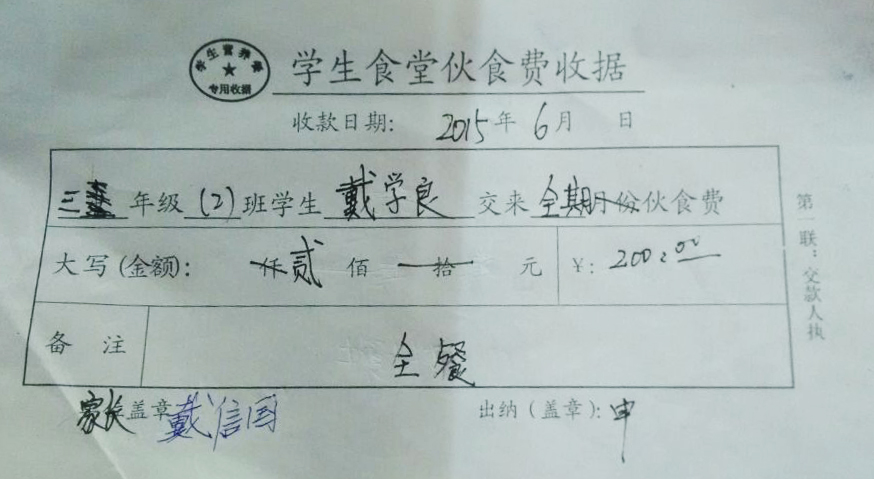 学生营养餐
★
专用收据
学生食堂伙食费收据
收款日期: 2015年6月 日
三 年级(2)班学生戴学良 交来全期月份伙食费
大写(金额): 仟贰佰 拾 元 ¥: 200.00
备注 全餐
家长盖章 戴信国 出纳(盖章): 申
第一联:交款人执